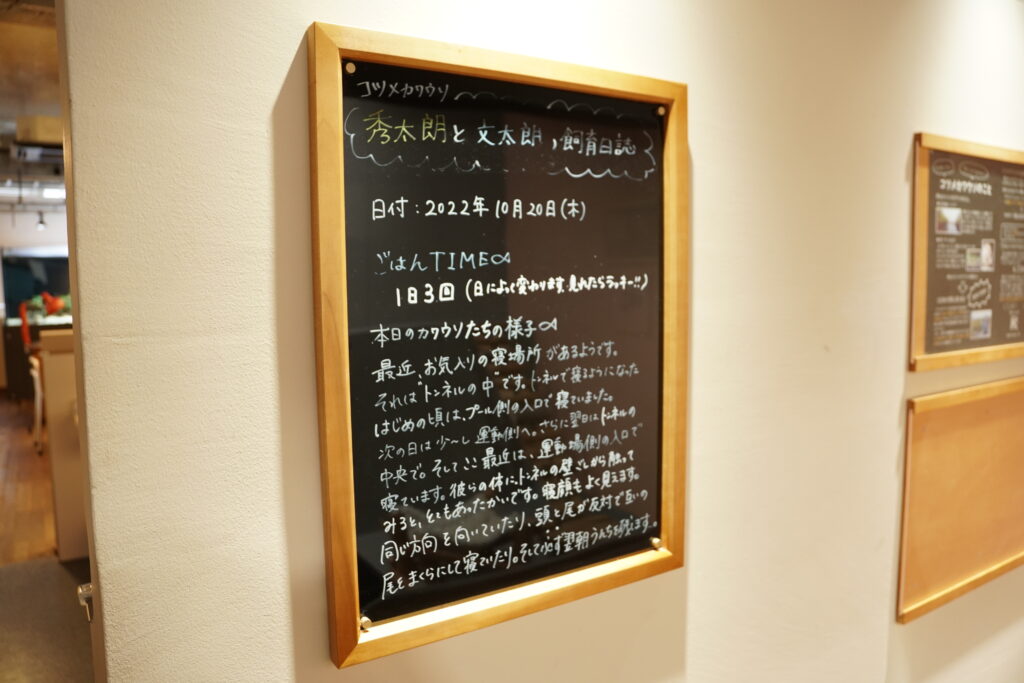 コツメカワウソ
秀太朗と文太朗、飼育日誌
日付:2022年10月20日(木)
ごはんTIME
1日3回(日によって変わります、見れたらラッキー!!)
本日のカワウソたちの様子
最近、お気入りの寝場所があるようです。
それは"トンネルの中"です。トンネルで寝るようになった
はじめの頃は、プール側の入口で寝ていました。
次の日は少〜し運動側へ。さらに翌日はトンネルの
中央で。そしてここ最近は、運動場側の入口で
寝ています。彼らの体に、トンネルの壁ごしから触って
みると、とてもあったかいです。寝顔もよく見えます。
同じ方向を向いていたり、頭と尾が反対で互いの
尾をまくらにして寝ていたり。そして必ず翌朝うんちも
コツメカワウソのこと